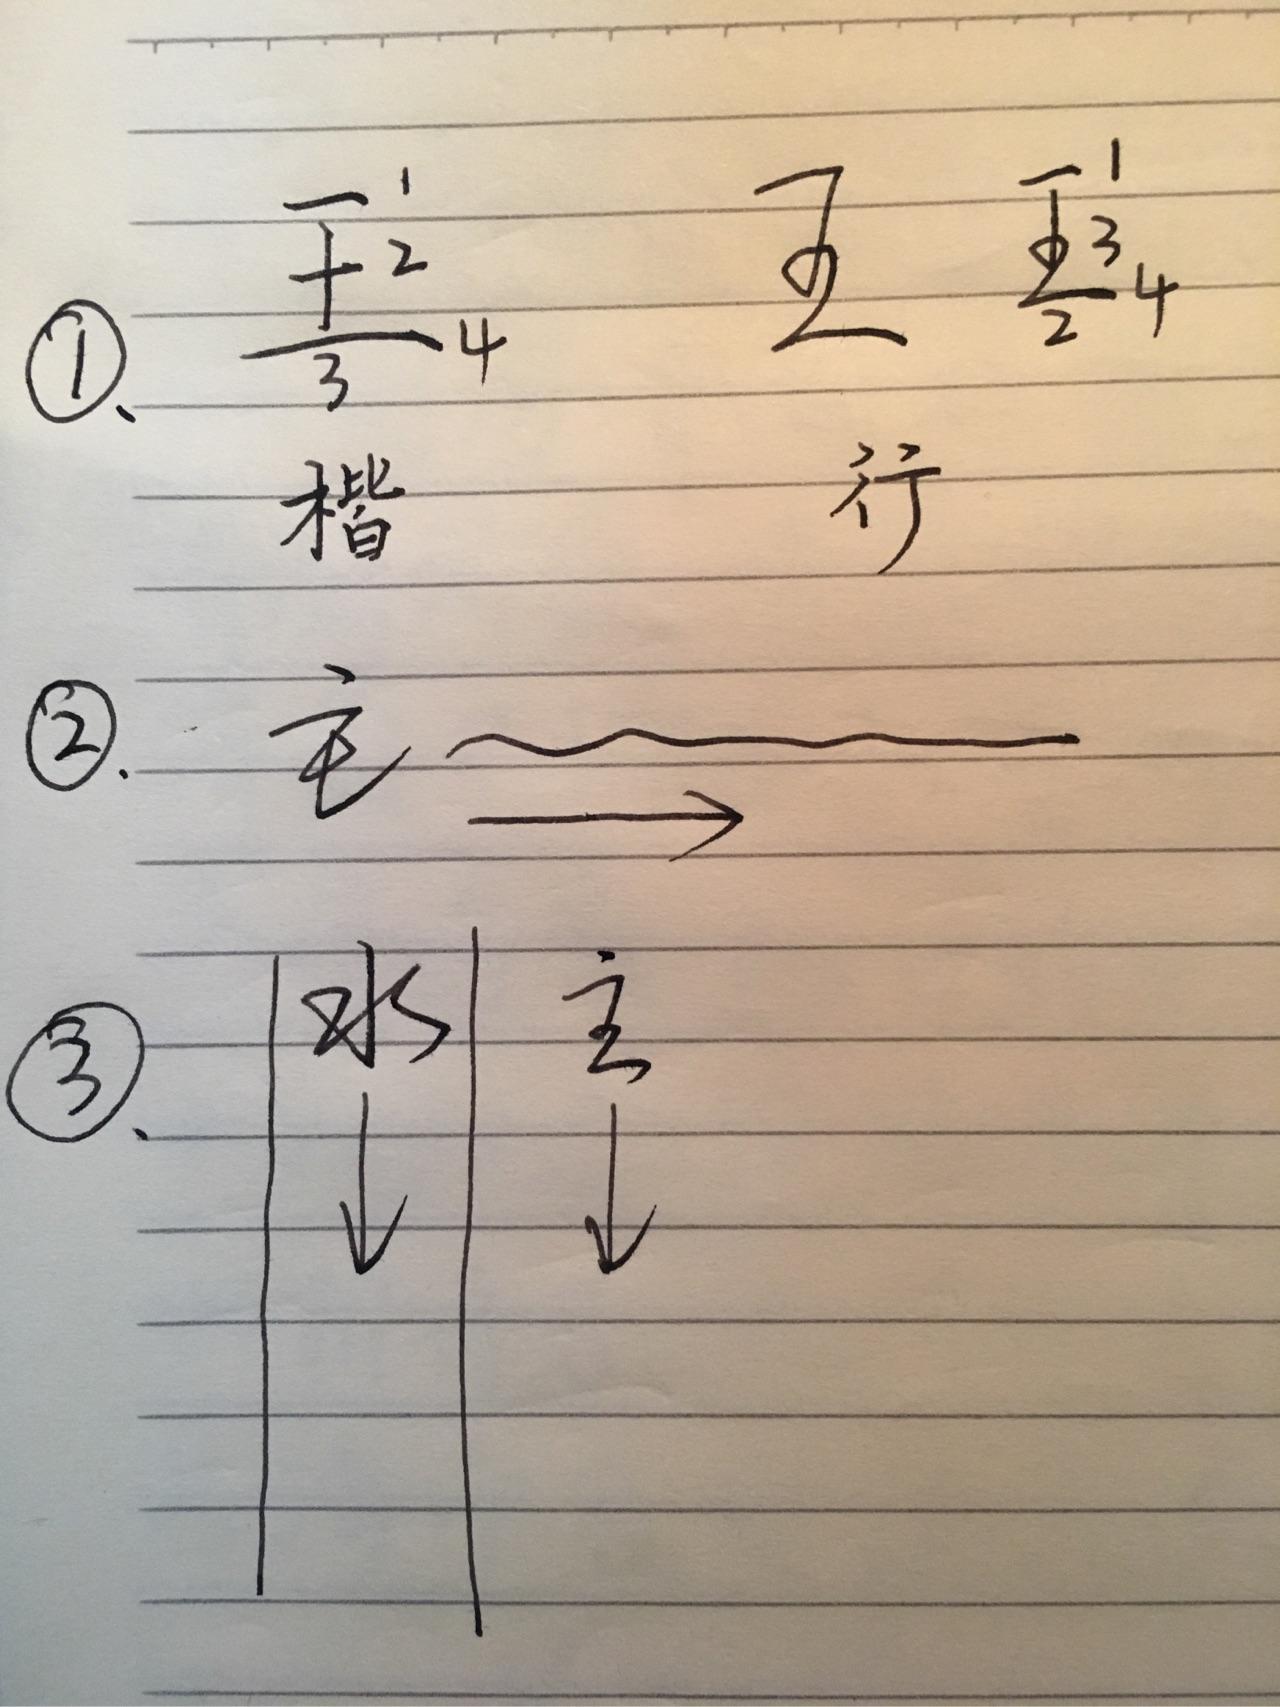 ①、 王 1 2 3 4 王 王 1 3 2 4
楷 行
②. 主
③、 水 主